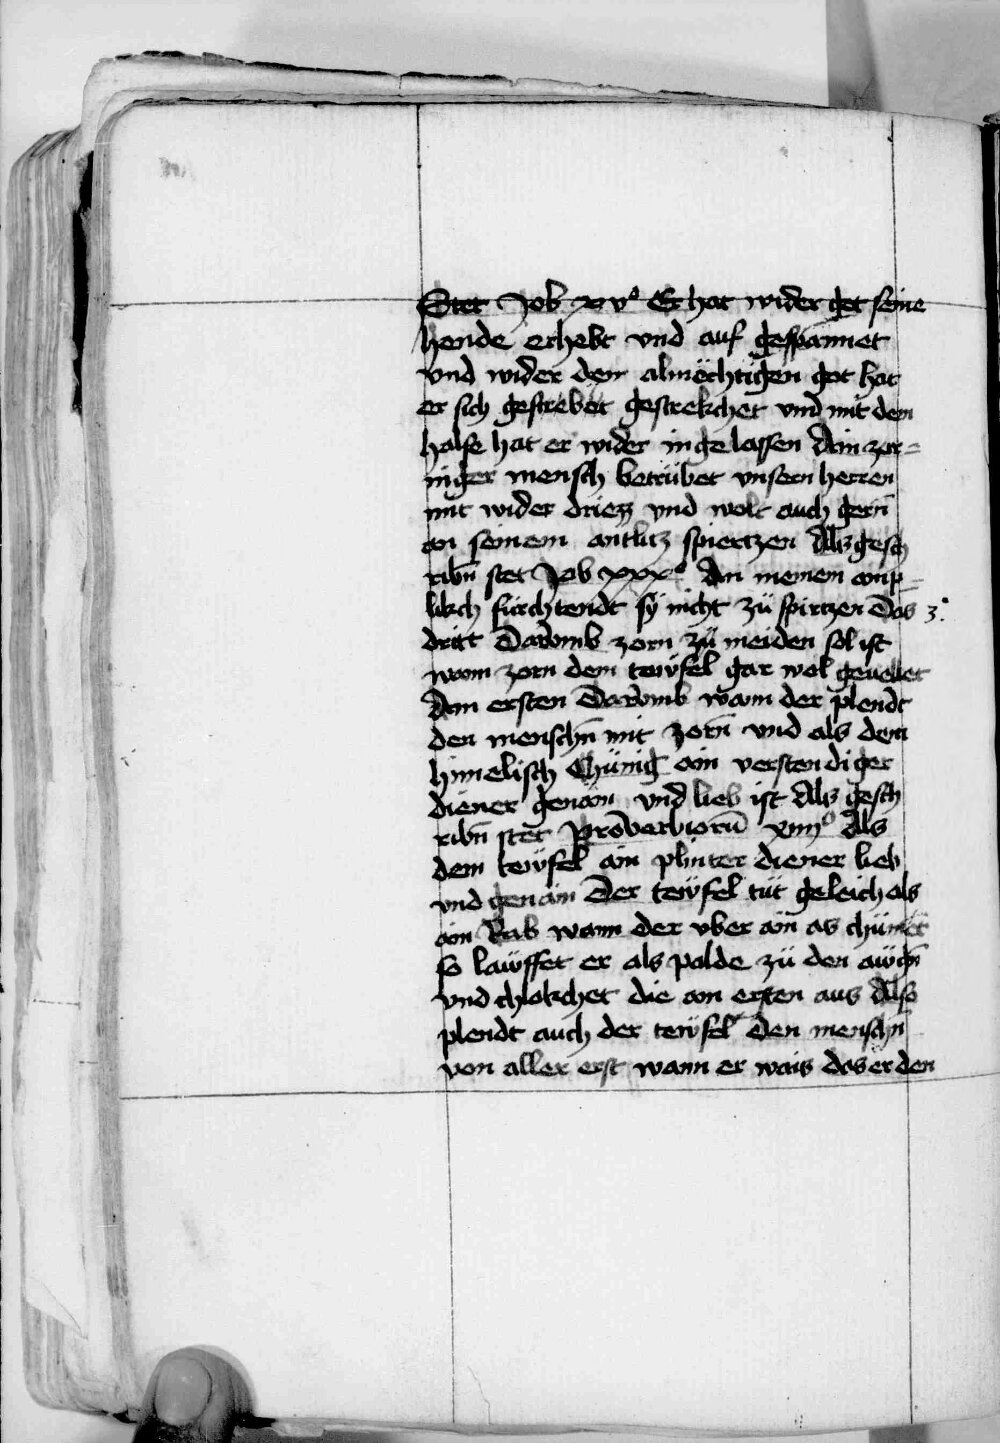 Stet Job xvº Er hat wider got seine
hende erhebt vnd auf gespannet
vnd wider den almëchtigen got hat
er sich gestrebet gestrekchet vnd mit dem
halse hat er wider in gelassen Ain zor-
niger mensch betrübet vnsern herren
mit wider driezz vnd wolt auch gern̄
an seinem antlitz spiertzen Als gesch
ribn̄ stet Job xxxº An meinem anp-
likch fürchtendt sÿ nicht zü spirtzen Das 3ᵃ
dritt Darumb zorn zü meiden sol ist
wann zorn dem tewfel gar wol geuellet
Am ersten Darumb wann der plendt
den menschn̄ mit zorn̄ vnd als dem
himelisch Chünig ain verstendiger
diener genäm vnd lieb ist Als gesch
ribn̄ stet Proverbiorū xiiijº Als
dem tewfel ain plinter diener lieb
vnd genäm Der tewfel tüt geleich als
ain Rab wann der vber ain as chümet
so lawffet er als palde zü den awgn̄
vnd chlokchet die am ersten aus Also
plendt auch der tewfel Den menschn̄
von aller erst wann er wais das er den